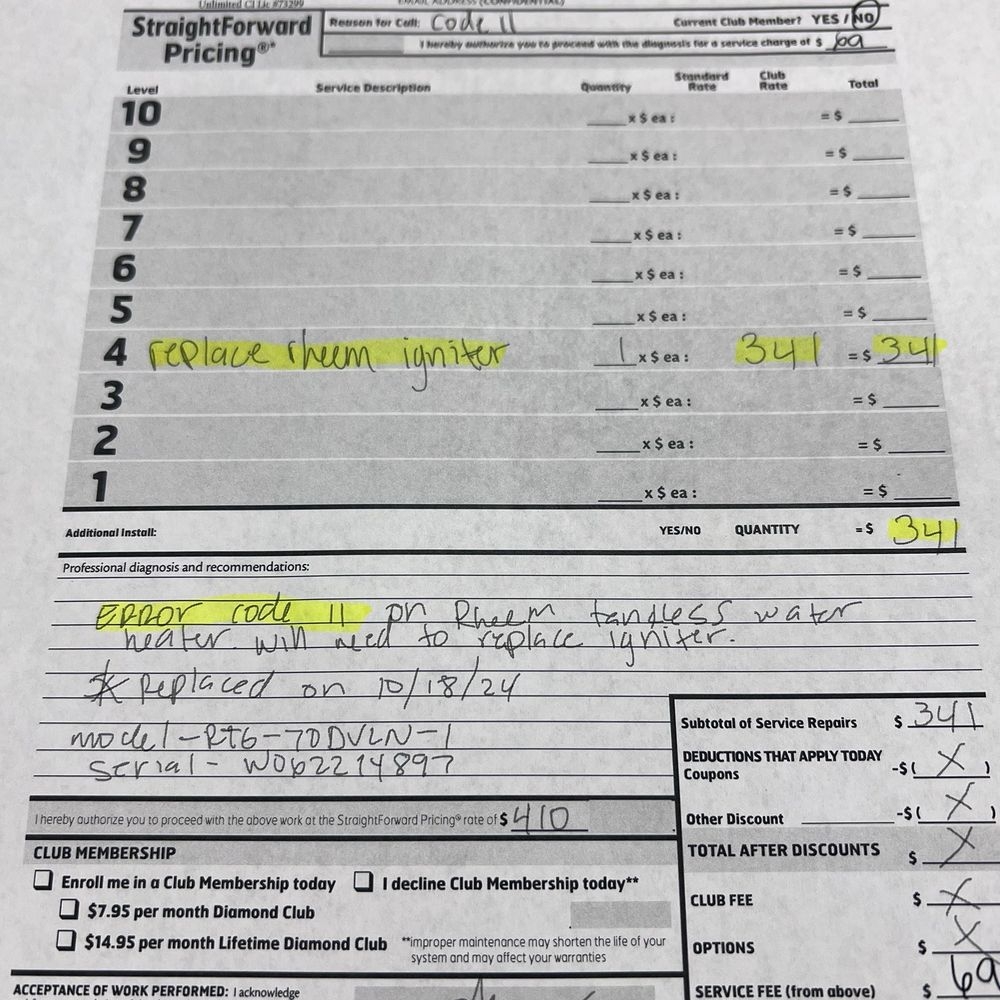 Unlimited CI Lic #73299
EMAIL ADDRESS (CONFIDENTIAL)
StraightForward Pricing®*
Reason for Call: Code 11 Current Club Member? YES / NO
I hereby authorize you to proceed with the diagnosis for a service charge of $ 69
Level Service Description Quantity Standard Rate Club Rate Total
10 ___ x $ ea : = $ ___
9 ___ x $ ea : = $ ___
8 ___ x $ ea : = $ ___
7 ___ x $ ea : = $ ___
6 ___ x $ ea : = $ ___
5 ___ x $ ea : = $ ___
4 replace rheem igniter 1 x $ ea : 341 = $ 341
3 ___ x $ ea : = $ ___
2 ___ x $ ea : = $ ___
1 ___ x $ ea : = $ ___
Additional Install: YES/NO QUANTITY = $ 341
Professional diagnosis and recommendations:
ERROR code 11 on Rheem tankless water
heater. will need to replace igniter.
* Replaced on 10/18/24
model - RTG-70DVLN-1
serial - W062214897
Subtotal of Service Repairs $ 341
DEDUCTIONS THAT APPLY TODAY
Coupons -$( X )
Other Discount ___ -$( X )
TOTAL AFTER DISCOUNTS $ X
CLUB FEE $ X
OPTIONS $ X
SERVICE FEE (from above) $ 69
I hereby authorize you to proceed with the above work at the StraightForward Pricing® rate of $ 410
CLUB MEMBERSHIP
Enroll me in a Club Membership today I decline Club Membership today**
$7.95 per month Diamond Club
$14.95 per month Lifetime Diamond Club **improper maintenance may shorten the life of your
system and may affect your warranties
ACCEPTANCE OF WORK PERFORMED: I acknowledge